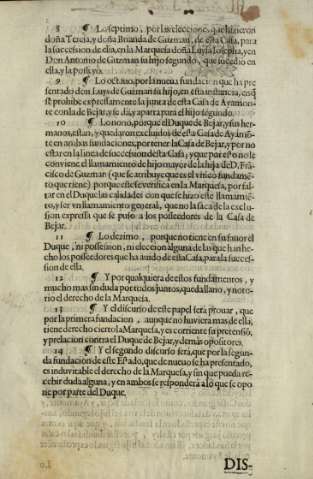 8 ¶ Lo septimo, por las elecciones que hizieron
doña Teresa, y doña Brianda de Guzman, de esta Casa, para
la succession de ella, en la Marquesa doña Luysa Iosepha, y en
Don Antonio de Guzman su hijo segundo, que sucedio en
esta, y la posseyò.
9 ¶ Lo octauo, por la nueua fundacion que ha pre-
sentado don Luys de Guzman su hijo, en esta instancia, en que
se prohibe expressamente la junta de esta Casa de Ayamon-
te con la de Bejar, y se dà, y aparta para el hijo segundo.
10 ¶ Lo nono, porque el Duque de Bejar, y sus her-
manos, estan, y quedaron excluidos de esta Casa de Ayamõ-
te en ambas fundaciones, por tener la Casa de Bejar, y por no
estar en la linea de succession desta Casa, y que por esto no le
conviene el llamamiento de hijo mayor de la hija de D. Frã-
cisco de Guzman (que se atribuye que es el vnico fundamẽ-
to que tiene) porque este se verifica en la Marquesa, por fal-
tar en el Duque las calidades con que se hizo este llamamiẽ-
to, y ser vn llamamiento general, que no la saca de la exclu-
sion expressa que se puso a los posseedores de la Casa de
Bejar.
11 ¶ Lo dezimo, porque no tiene en su fauor el
Duque, ni possession, ni eleccion alguna de las que han he-
cho los posseedores que ha auido de esta Casa, para la succes-
sion de ella.
12 ¶ Y por qualquiera de estos fundamentos, y
mucho mas sin duda por todos juntos, queda llano, y noto-
rio el derecho de la Marquesa.
13 ¶ Y el discurso de este papel serà prouar, que
por la primera fundacion, aunque no huviera mas de ella,
tiene derecho cierto la Marquesa, y es corriente su pretensiõ,
y prelacion contra el Duque de Bejar, y demàs opositores.
14 ¶ Y el segundo discurso serà, que por la segun-
da fundacion de este Estado, que de nueuo se ha presentado,
es induvitable el derecho de la Marquesa, y sin que pueda re-
cebir duda alguna, y en ambos se responderà a lo que se opo-
ne por parte del Duque.
DIS-